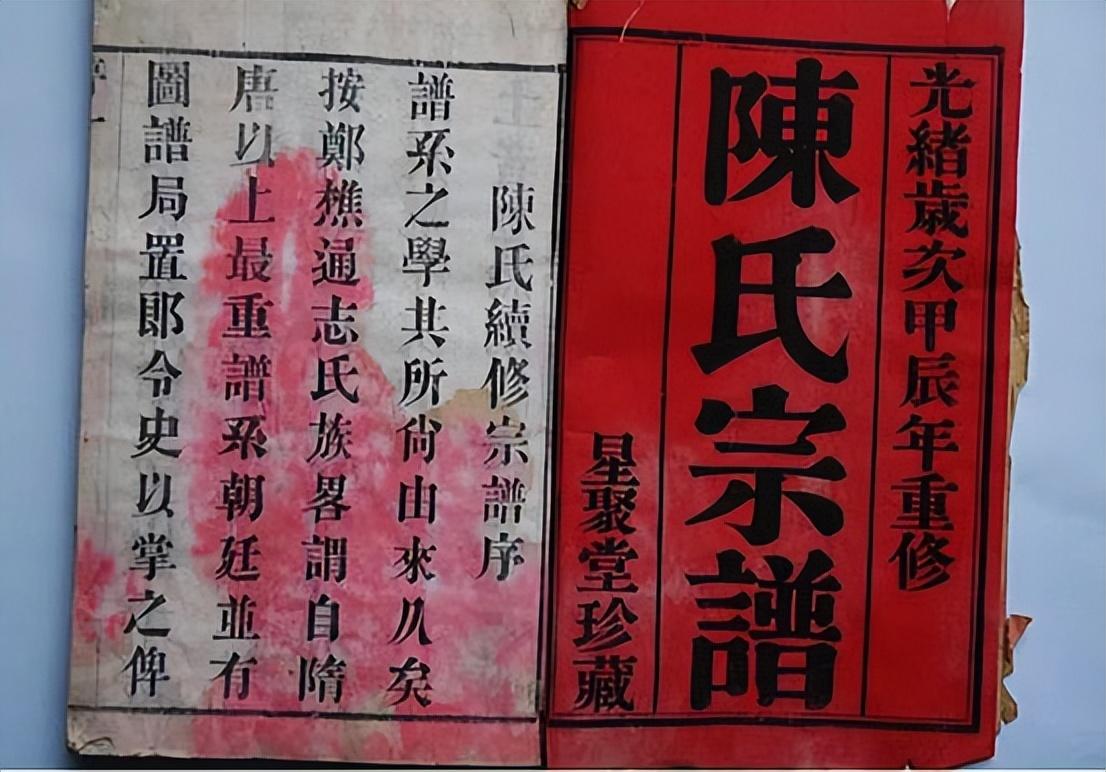 光緒歲次甲辰年重修
陳氏宗譜
星聚堂珍藏
陳氏續修宗譜序
譜系之學其所尙由來久矣
按鄭樵通志氏族畧謂自隋
唐以上最重譜系朝廷並有
圖譜局置郎令史以掌之俾